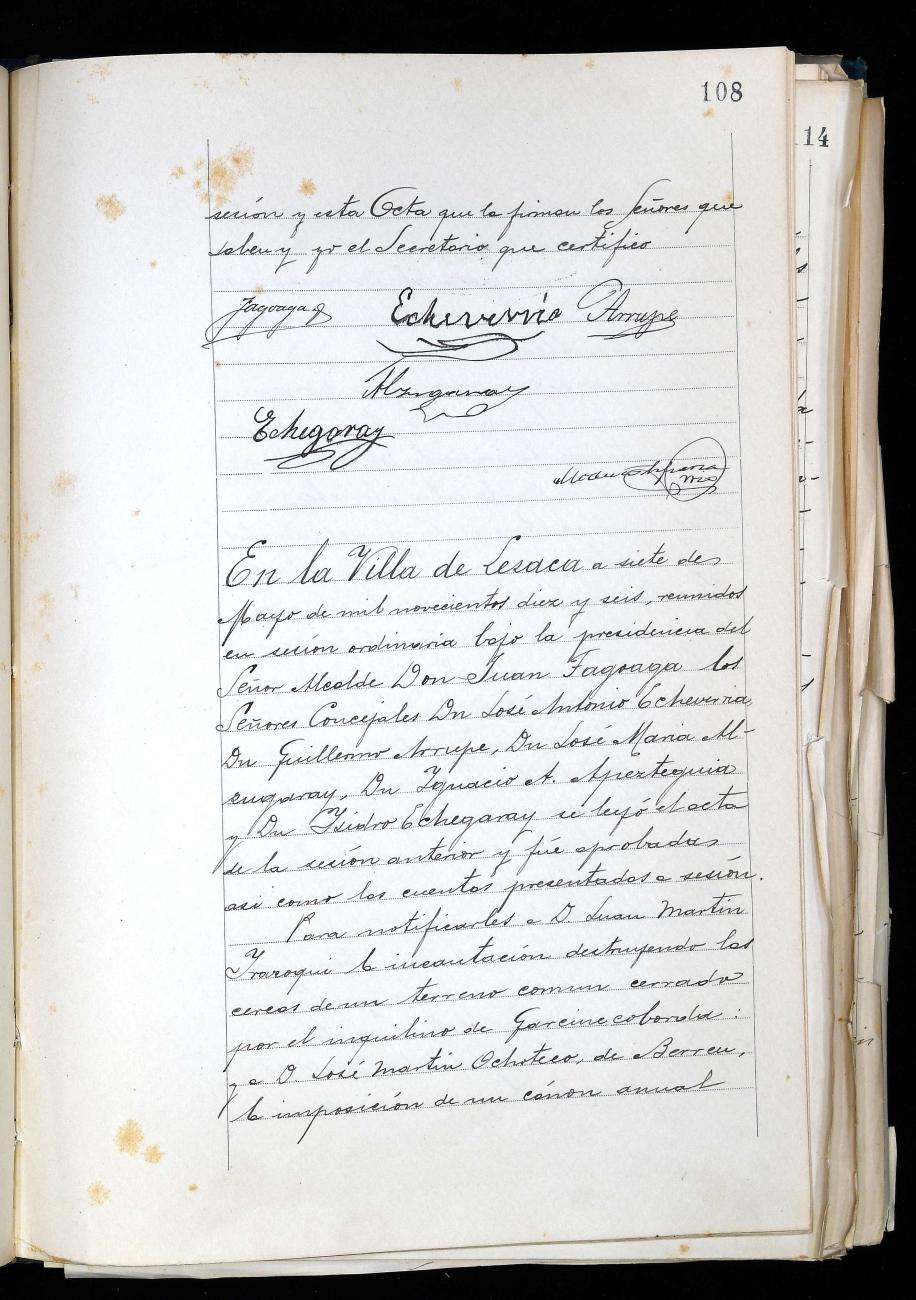 108
14
sesión y esta Octa que la firman los Señores que
saben y yo el Secretario que certifico
Fagoaga
Echeverría Arrupe
Alzugaray
Echegaray
En la Villa de Lesaca a siete de
Mayo de mil novecientos diez y seis, reunidos
en sesión ordinaria bajo la presidencia del
Señor Alcalde Don Juan Fagoaga los
Señores Concejales Dn José Antonio Echeverria,
Dn Guillermo Arrupe, Dn José Maria Al-
zugaray, Dn Ygnacio A. Apezteguia
y Dn Ysidro Echegaray se leyó el acta
de la sesión anterior y fué aprobada,
asi como las cuentas presentadas a sesión.
Para notificarles a D. Juan Martin
Yrazoqui la incautación destruyendo las
cercas de un terreno comun cerrado
por el inquilino de Garcinecoborda:
y a D. José Martin Ochoteco, de Berreu,
la imposición de un cánon anual